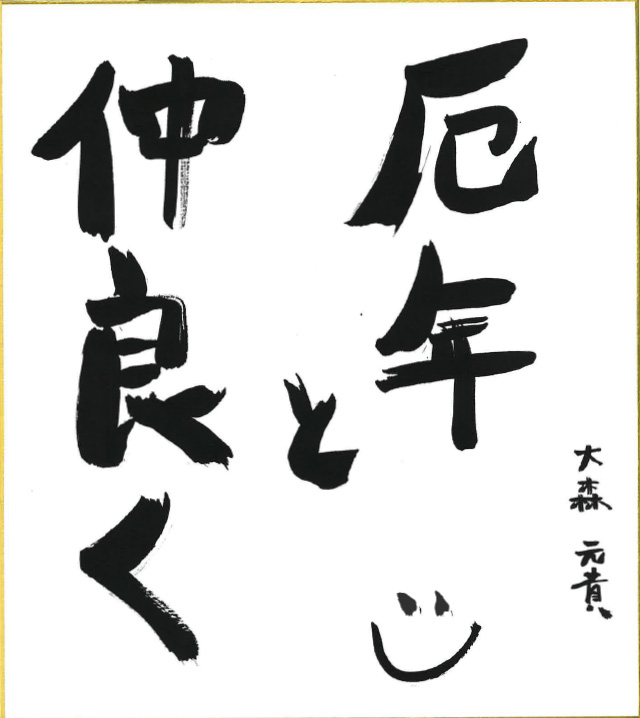 大森 元貴
厄年
と
仲良く